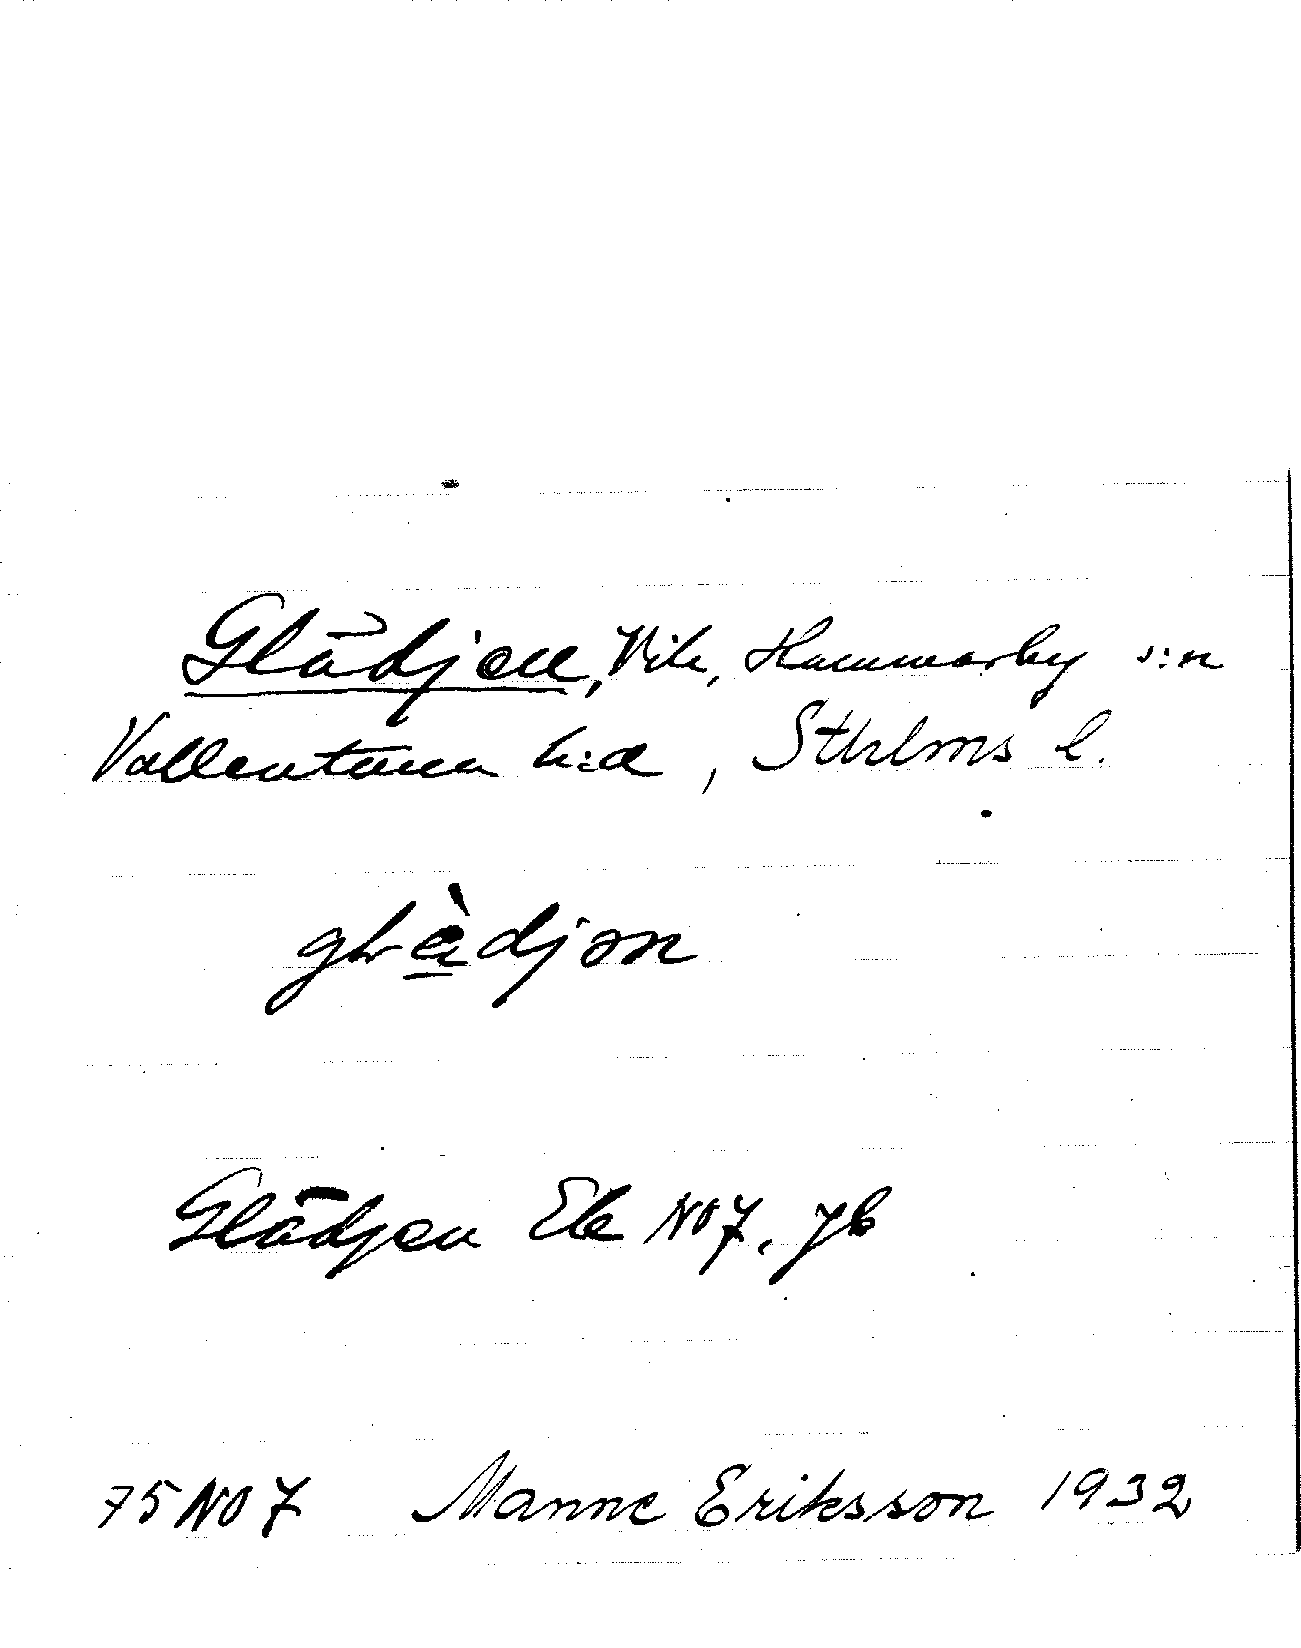 Glädjen, Vik, Hammarby s:n
Vallentuna h:d, Sthlms l.
glädjən
Glädjen Ek NO7, 7b
75 NO 7 Manne Eriksson 1932